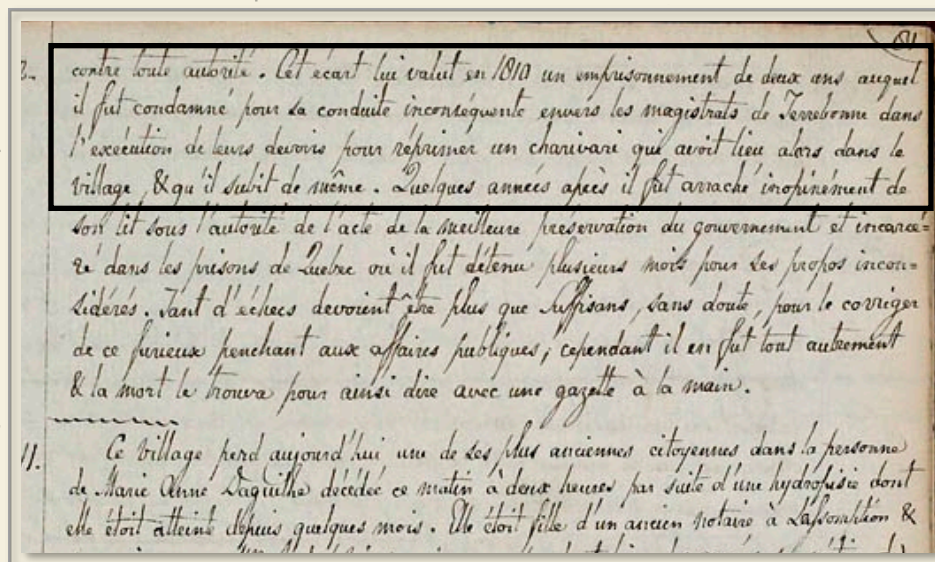 contre toute autorité. Cet écart lui valut en 1810 un emprisonnement de deux ans auquel
il fut condamné pour sa conduite inconséquente envers les magistrats de Terrebonne dans
l'exécution de leurs devoirs pour réprimer un charivari qui avoit lieu alors dans le
village, & qu'il subit de même. Quelques années après il fut arraché inopinément de
son lit sous l'autorité de l'acte de la meilleure préservation du gouvernement et incarcé=
ré dans les prisons de Quebec où il fut détenu plusieurs mois pour ses propos incon=
sidérés. Tant d'échecs devoient être plus que suffisans, sans doute, pour le corriger
de ce furieux penchant aux affaires publiques; cependant il en fut tout autrement
& la mort le trouva pour ainsi dire avec une gazette à la main.
11. Ce village perd aujourd'hui une de ses plus anciennes citoyennes dans la personne
de Marie Anne Daguilhe décédée ce matin à deux heures par suite d'une hydropisie dont
elle étoit atteinte depuis quelques mois. Elle étoit fille d'un ancien notaire à Lassomption &